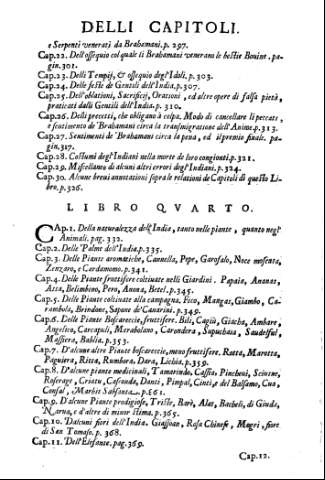 DELLI CAPITOLI.
e Serpenti venerati da Brahamani. p. 297.
Cap.22. Dell'ossequio col quale li Brahamani venerano le bestie Bouine. pa-
gin.301.
Cap.23. Delli Tempij, & ossequio degl'Idoli. p. 303.
Cap.24. Delle feste de Gentili dell'India. p.307.
Cap.25. Dell'oblationi, Sacrificij, Orationi, ed altre opere di falsa pietà,
praticati dalli Gentili dell'India. p. 310.
Cap.26. Delli precetti, che obligano à colpa. Modo di cancellare li peccati,
e sentimento de'Brahamani circa la transmigratione dell'Anime. p.313.
Cap.27. Sentimenti de'Brahamani circa la pena, ed il premio finale. pa-
gin.317.
Cap.28. Costumi degl'Indiani nella morte de loro congionti. p.321.
Cap.29. Miscellanea di alcuni altri errori degl'Indiani. p.324.
Cap.30. Alcune breui annotationi sopra le relationi de Capitoli di questo Li-
bro. p.326.
LIBRO QVARTO.
CAp.1. Della naturalezza dell'India, tanto nelle piante, quanto negl'
Animali. pag. 332.
Cap.2. Delle Palme dell'India. p.335.
Cap.3. Delle Piante aromatiche, Cannella, Pepe, Garofalo, Noce moscata,
Zenzaro, e Cardamomo. p.341.
Cap.4. Delle Piante fruttifere coltiuate nelli Giardini. Papaia, Ananas,
Atta, Belimbeno, Pero, Anona, Betel. p.345.
Cap.5. Delle Piante coltiuate alla campagna. Fico, Mangas, Giambo, Ca-
rambola, Brindone, Sapone de'Canarini. p.349.
Cap.6. Delle Piante Boscareccie, fruttifere. Bili, Cagiù, Giacha, Ambare,
Angelica, Carcapuli, Mirabolano, Carondera, Supuchaia, Saudesful,
Massiera, Bablia. p.353.
Cap.7. D'alcune altre Piante boscareccie, meno fruttifere. Ratta, Marotta,
Paguiera, Ritta, Rumbora, Dora, Lichia. p.359.
Cap.8. D'alcune piante medicinali, Tamarindo, Cassia, Pinchoni, Seiutne,
Roserage, Cristu, Cascando, Danti, Pinpal, Cinti, del Balsamo, Cua,
Consul, Marbit Salsanta. p.561.
Cap.9. D'alcune Piante prodigiose, Triste, Barè, Alas, Bacheli, di Giuda,
Narua, e d'altre di minor stima. p.365.
Cap.10. D'alcuni fiori dell'India. Giassoan, Rosa Chinese, Mogri, fiore
di San Tomaso. p. 368.
Cap.11. Dell'Elefante. pag.369.
Cap.12.